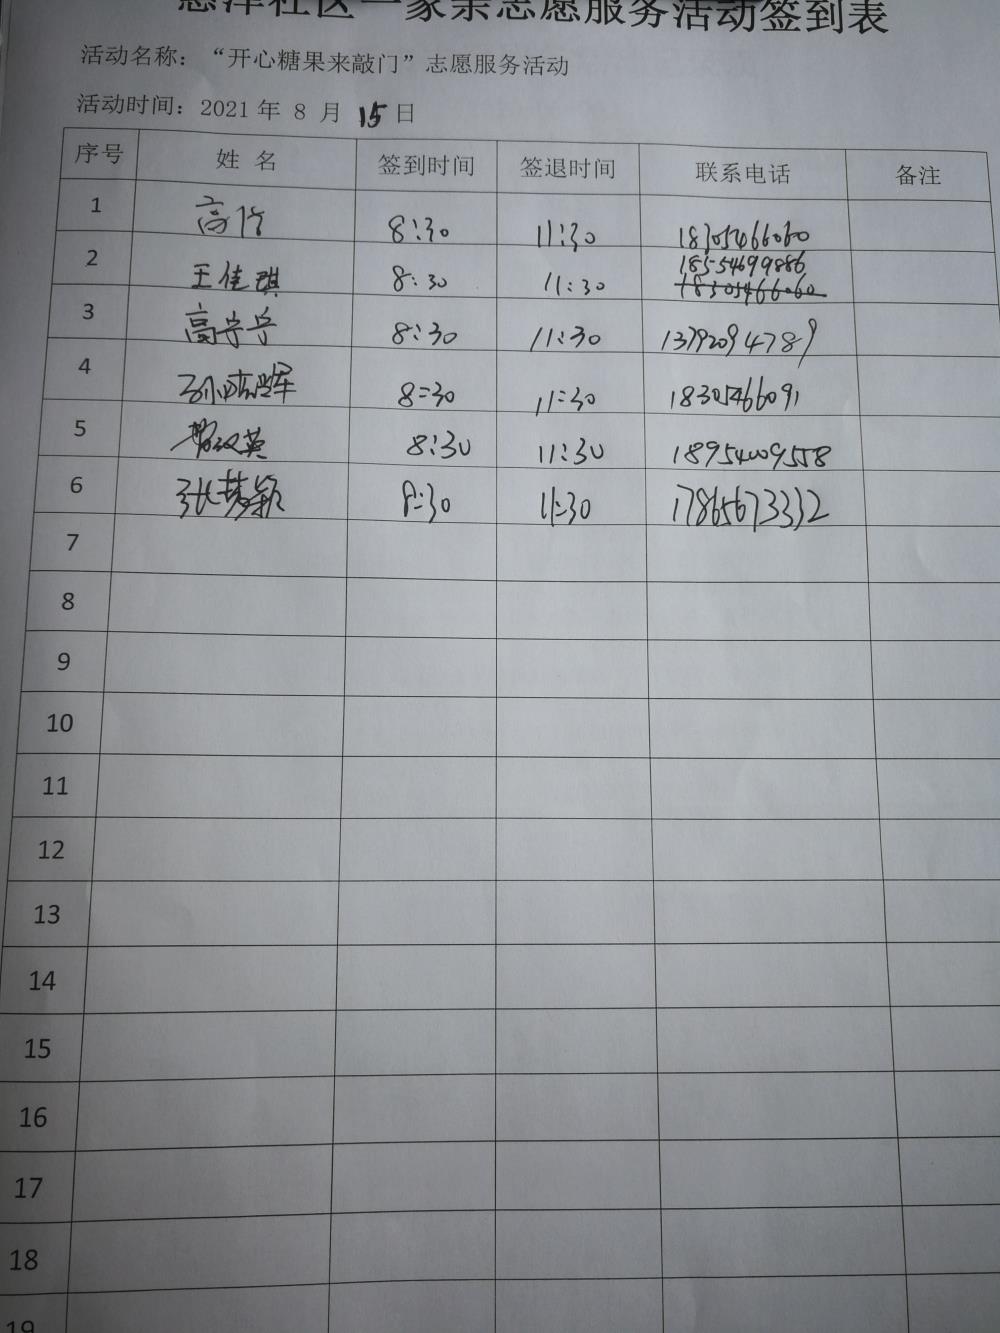 社区一家亲志愿服务活动签到表
活动名称：“开心糖果来敲门”志愿服务活动
活动时间：2021 年 8 月 15 日
序号 姓 名 签到时间 签退时间 联系电话 备注
1 高 8:30 11:30 18305466060
18554699886
2 王佳琪 8:30 11:30 18305466060
3 高宁宁 8:30 11:30 13792094789
4 8:30 11:30 18305466091
5 8:30 11:30 18954009558
6 张梦颖 8:30 11:30 17865673332
7
8
9
10
11
12
13
14
15
16
17
18
19